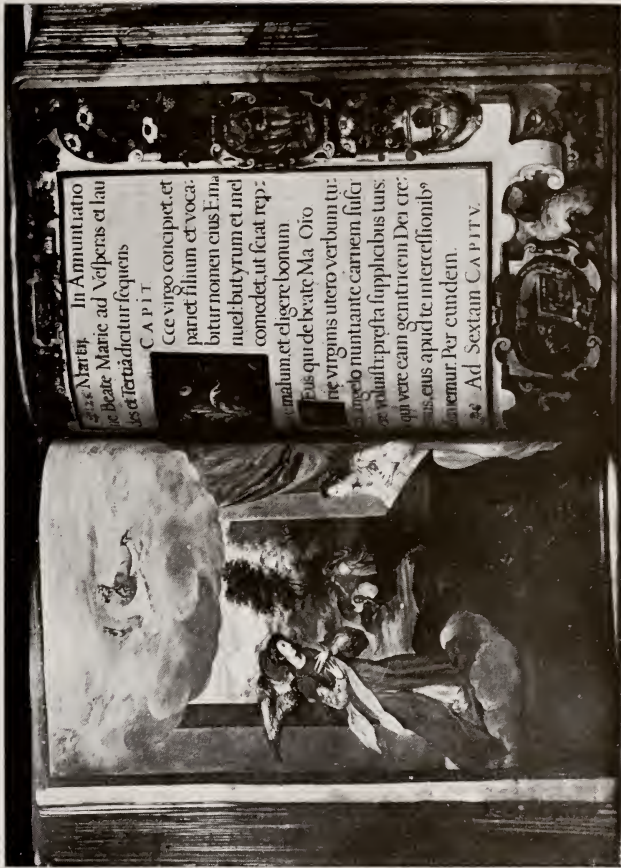 Martij. In Annuntiatio
ne Beate Marie ad Vesperas et lau
des et Tertiā dicitur sequens
CAPIT
Cce virgo concipiet, et
pariet filium et voca:
bitur nomen eius Ema
nuel: butyrum et mel
comedet, ut sciat rep:
malum, et eligere bonum
Eus qui de beate Ma Oro
ne virginis utero verbum tu:
Angelo nuntiante carnem susci
voluisti: presta supplicibus tuis:
qui vere eam genitricem Dei cre:
eius apud te intercessionib9
Per eundem.
Ad Sextam CAPITV.